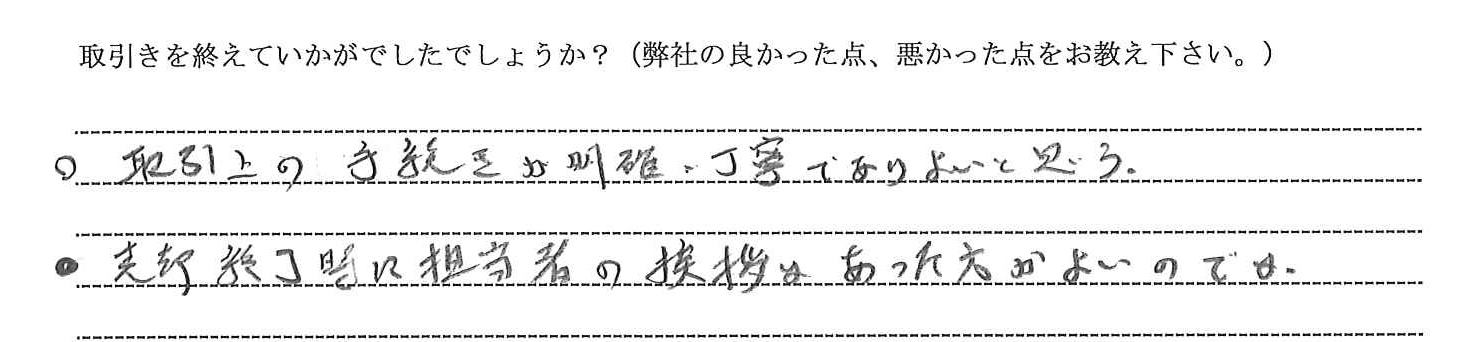 取引きを終えていかがでしたでしょうか？（弊社の良かった点、悪かった点をお教え下さい。）
○ 取引上の手続きが明確、丁寧でありよいと思う。
● 売却終了時に担当者の挨拶はあった方がよいのでは。